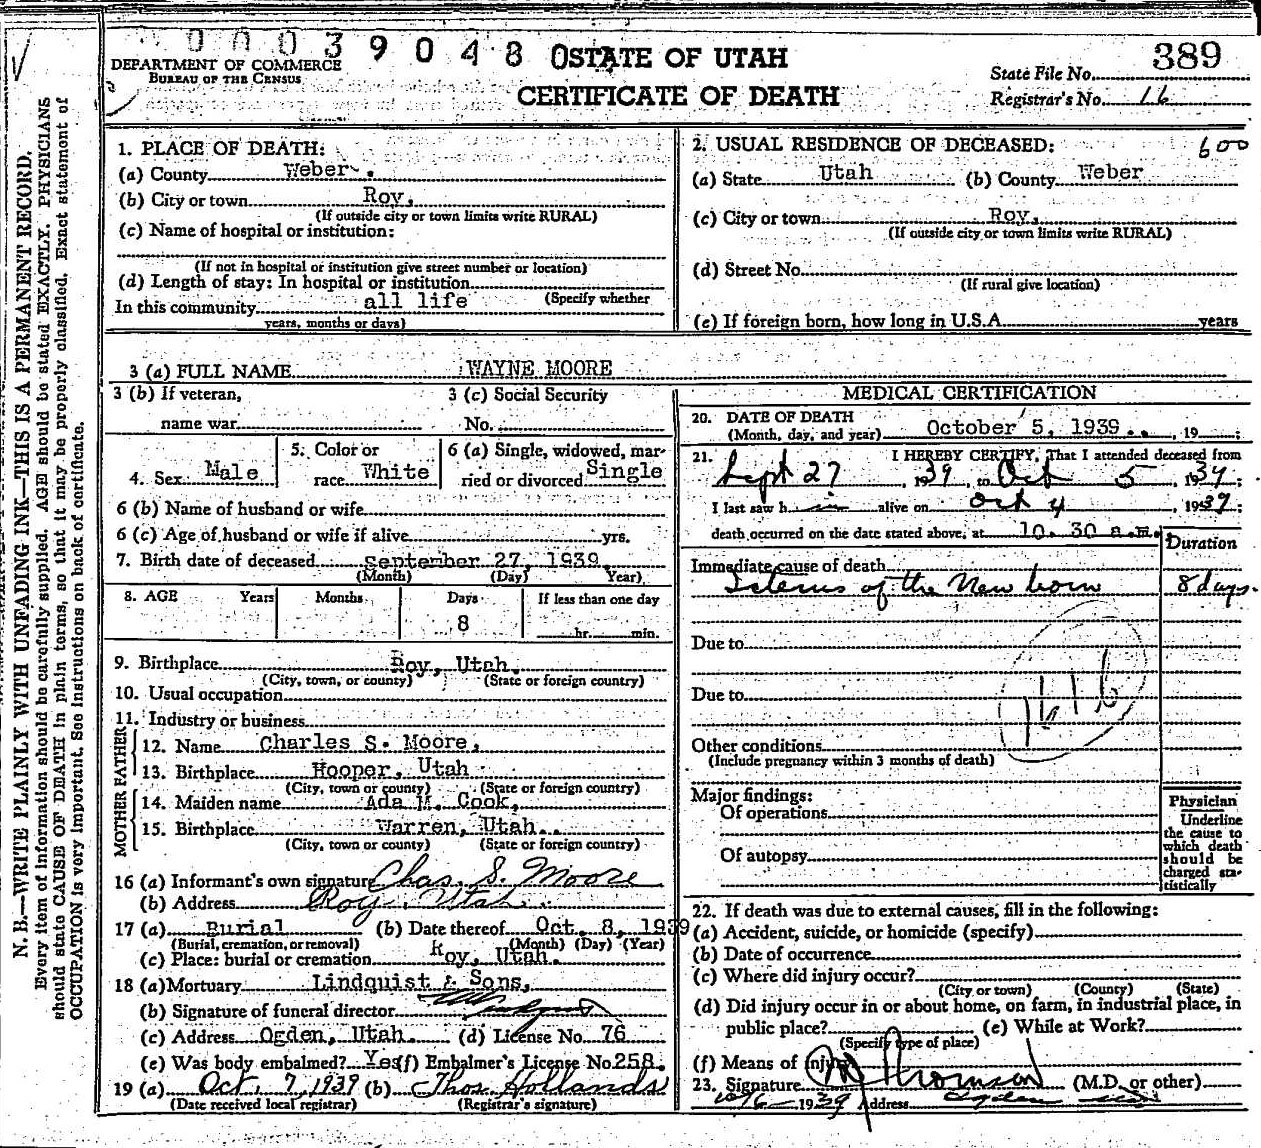 00039048 02
STATE OF UTAH
CERTIFICATE OF DEATH
DEPARTMENT OF COMMERCE
BUREAU OF THE CENSUS
389
State File No.
Registrar's No. 16
N. B.—WRITE PLAINLY WITH UNFADING INK—THIS IS A PERMANENT RECORD.
Every item of information should be carefully supplied. AGE should be stated EXACTLY. PHYSICIANS
should state CAUSE OF DEATH in plain terms, so that it may be properly classified. Exact statement of
OCCUPATION is very important. See instructions on back of certificate.
1. PLACE OF DEATH:
(a) County Weber
(b) City or town Roy,
(If outside city or town limits write RURAL)
(c) Name of hospital or institution:
(If not in hospital or institution give street number or location)
(d) Length of stay: In hospital or institution
(Specify whether
In this community all life
years, months or days)
2. USUAL RESIDENCE OF DECEASED: 600
(a) State Utah (b) County Weber
(c) City or town Roy,
(If outside city or town limits write RURAL)
(d) Street No.
(If rural give location)
(e) If foreign born, how long in U.S.A. years
3 (a) FULL NAME WAYNE MOORE
3 (b) If veteran,
name war
3 (c) Social Security
No.
4. Sex Male
5. Color or
race White
6 (a) Single, widowed, mar-
ried or divorced Single
6 (b) Name of husband or wife
6 (c) Age of husband or wife if alive yrs.
7. Birth date of deceased September 27, 1939
(Month) (Day) Year)
8. AGE Years Months Days If less than one day
8 hr. min.
9. Birthplace Roy, Utah.
(City, town, or county) (State or foreign country)
10. Usual occupation
11. Industry or business
FATHER
12. Name Charles S. Moore,
13. Birthplace Hooper, Utah
(City, town or county) (State or foreign country)
MOTHER
14. Maiden name Ada M. Cook,
15. Birthplace Warren, Utah.
(City, town or county) (State or foreign country)
16 (a) Informant's own signature Chas. S. Moore
(b) Address Roy, Utah.
17 (a) Burial (b) Date thereof Oct. 8, 1939
(Burial, cremation, or removal) (Month) (Day) (Year)
(c) Place: burial or cremation Roy, Utah.
18 (a) Mortuary Lindquist & Sons,
(b) Signature of funeral director
(c) Address Ogden, Utah. (d) License No. 76
(e) Was body embalmed? Yes (f) Embalmer's License No. 258.
19 (a) Oct. 7, 1939 (b) Thos. Hollands
(Date received local registrar) (Registrar's signature)
MEDICAL CERTIFICATION
20. DATE OF DEATH
(Month, day, and year) October 5, 1939. , 19 ;
21. I HEREBY CERTIFY, That I attended deceased from
Sept 27, 1939, to Oct 5, 1939;
I last saw h im alive on Oct 4, 1939;
death occurred on the date stated above, at 10.30 a.m.
Duration
Immediate cause of death
Icterus of the New born 8 days.
Due to
Due to
Other conditions
(Include pregnancy within 3 months of death)
Major findings:
Of operations
Of autopsy
Physician
Underline
the cause to
which death
should be
charged sta-
tistically
22. If death was due to external causes, fill in the following:
(a) Accident, suicide, or homicide (specify)
(b) Date of occurrence
(c) Where did injury occur?
(City or town) (County) (State)
(d) Did injury occur in or about home, on farm, in industrial place, in
public place? (e) While at Work?
(Specify type of place)
(f) Means of Injury
23. Signature Thomson (M.D. or other)
10/6 1939 Address Ogden